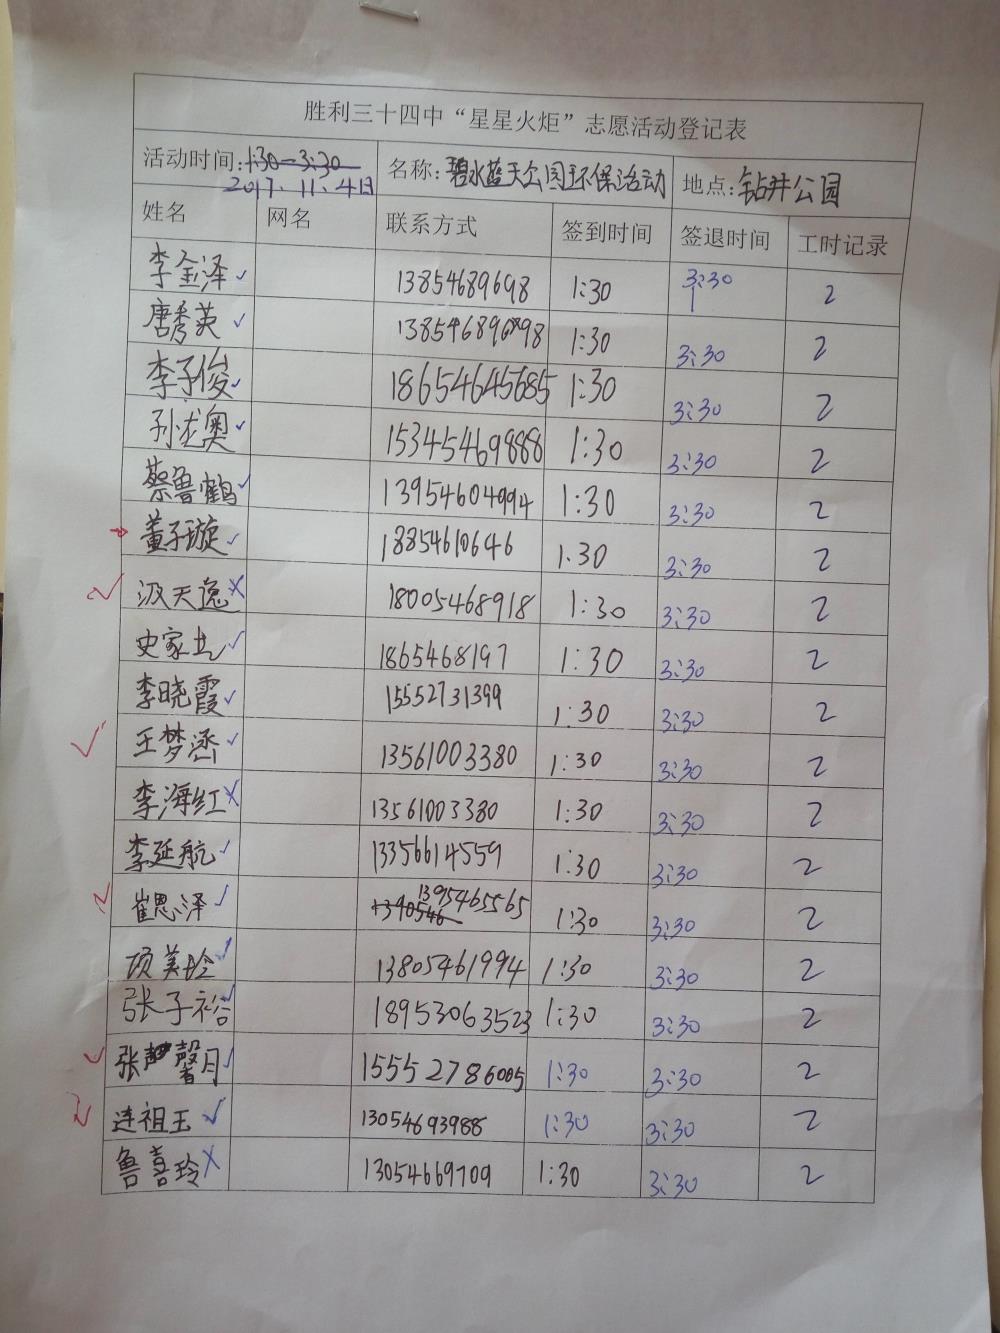 胜利三十四中“星星火炬”志愿活动登记表
活动时间:1:30-3:30 名称:碧水蓝天公园环保活动 地点:钻井公园
2017.11.4日
姓名 网名 联系方式 签到时间 签退时间 工时记录
李金泽✓ 13854689698 1:30 3:30 2
唐秀英✓ 1:30 3:30 2
李子俊✓ 18654645685 1:30 3:30 2
✓ 15345469888 1:30 3:30 2
蔡鲁鹤✓ 13954604994 1:30 3:30 2
董子璇✓ 18854610646 1:30 3:30 2
✓ 汲天逸× 18005468918 1:30 3:30 2
✓ 1865468197 1:30 3:30 2
李晓霞✓ 15552731399 1:30 3:30 2
✓ 王梦涵✓ 13561003380 1:30 3:30 2
李海红× 13561003380 1:30 3:30 2
李延航✓ 13356614559 1:30 3:30 2
✓ 崔思泽✓ 1395465565 1:30 3:30 2
项美玲✓ 13805461994 1:30 3:30 2
张子裕✓ 18953063523 1:30 3:30 2
✓ 张馨月✓ 15552786005 1:30 3:30 2
✓ 连祖王✓ 13054693988 1:30 3:30 2
鲁喜玲× 13054669709 1:30 3:30 2